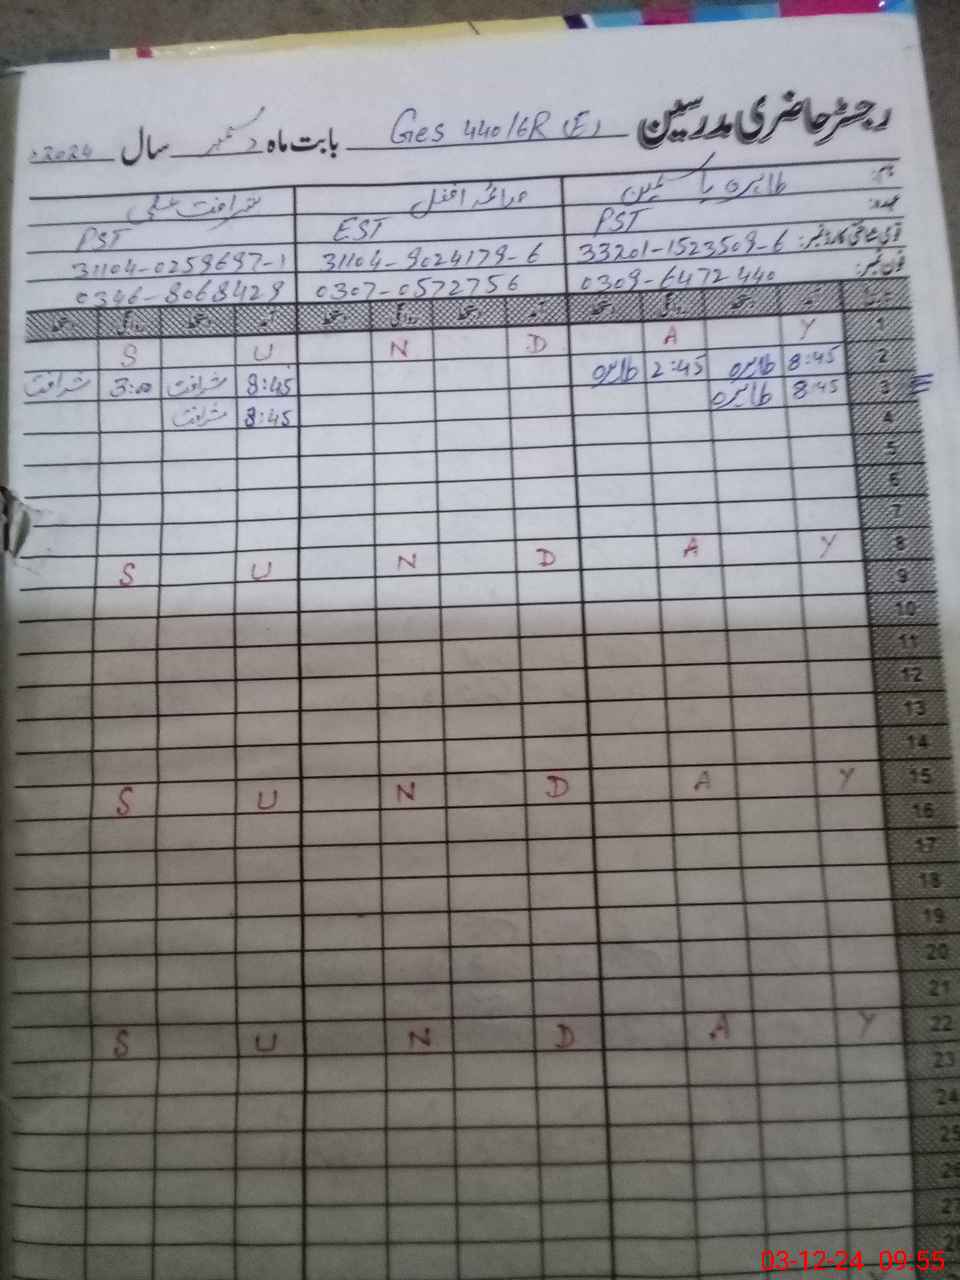 رجسٹر حاضری مدرسین Ges 440/6R (E) بابت ماہ دسمبر سال 2024ء
نام: طاہرہ یاسمین صائمہ افضل شرافت علی
عہدہ: PST EST PST
قومی شناختی کارڈ نمبر: 33201-1523509-6 31104-9024179-6 31104-0259697-1
فون نمبر: 0309-6472440 0307-0572756 0346-8068429
تاریخ آمد دستخط روانگی دستخط آمد دستخط روانگی دستخط آمد دستخط روانگی دستخط
1 S U N D A Y
2 8:45 طاہرہ 2:45 طاہرہ 8:45 شرافت 3:00 شرافت
3 8:45 طاہرہ 8:45 شرافت
4
5
6
7
8 S U N D A Y
9
10
11
12
13
14
15 S U N D A Y
16
17
18
19
20
21
22 S U N D A Y
23
24
25
26
27
03-12-24 09:55